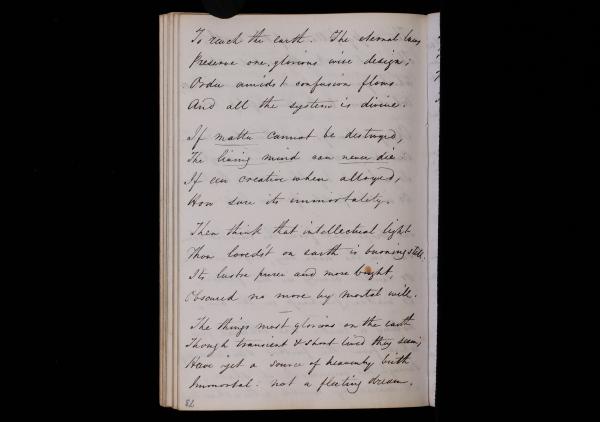 To reach the earth. The eternal laws
Preserve one, glorious wise design;
Order amidst confusion flows
And all the system is divine.
If matter cannot be destroyed,
The living mind can never die;
If een creative when alloyed,
How sure its immortality.
Then think that intellectual light
Thou loved'st on earth is burning still.
Its lustre purer and more bright,
Obscured no more by mortal will.
The things most glorious on the earth
Though transient & short lived they seem;
Have yet a source of heavenly birth
Immortal: not a fleeting dream.